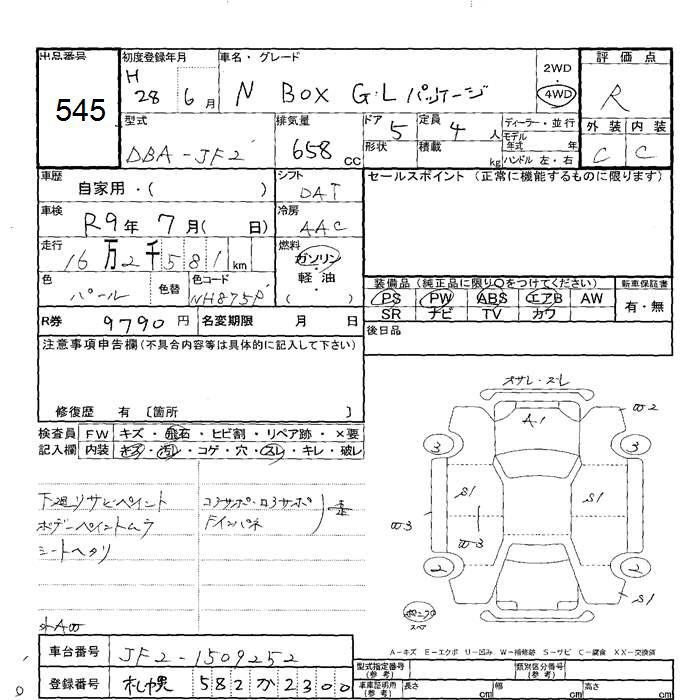 出品番号 初度登録年月 車名・グレード 2WD 評価点
545 H 28 6月 N BOX G・Lパッケージ 4WD R
型式 排気量 ドア 5 定員 4人 ディーラー・並行 外装 内装
DBA-JF2 658cc 形状 積載 kg モデル年式 年 C C
ハンドル 左・右
車歴 自家用・( ) シフト DAT セールスポイント (正常に機能するものに限ります)
車検 R9年 7月( 日) 冷房 AAC
走行 16万2千581km 燃料 ガソリン・軽・油
色 パール 色替 色コード NH875P ( )
装備品 (純正品に限り○をつけてください) 新車保証書
PS PW ABS エアB AW 有・無
SR ナビ TV カワ
R券 9790円 名変期限 月 日 後日品
注意事項申告欄 (不具合内容等は具体的に記入して下さい)
修復歴 有 〔箇所 〕
検査員 FW キズ・飛石・ヒビ割・リペア跡・×要
記入欄 内装 キズ・汚レ・コゲ・穴・スレ・キレ・破レ
下廻リサビペイント コアサポ・ロアサポ
ボデーペイントムラ Fインパネ
シートヘタリ
外A
オサレ・ズレ
A1
W2
3 3
S1 S1
W3
W3
2 2
S1
スペ
A-キズ E-エクボ U-凹み W-補修跡 S-サビ C-腐食 XX-交換済
車台番号 JF2-1509252 型式指定番号 (参考) 類別区分番号 (参考)
登録番号 札幌 582 か 2300 車庫証明用 (参考) 長さ cm 幅 cm 高さ cm